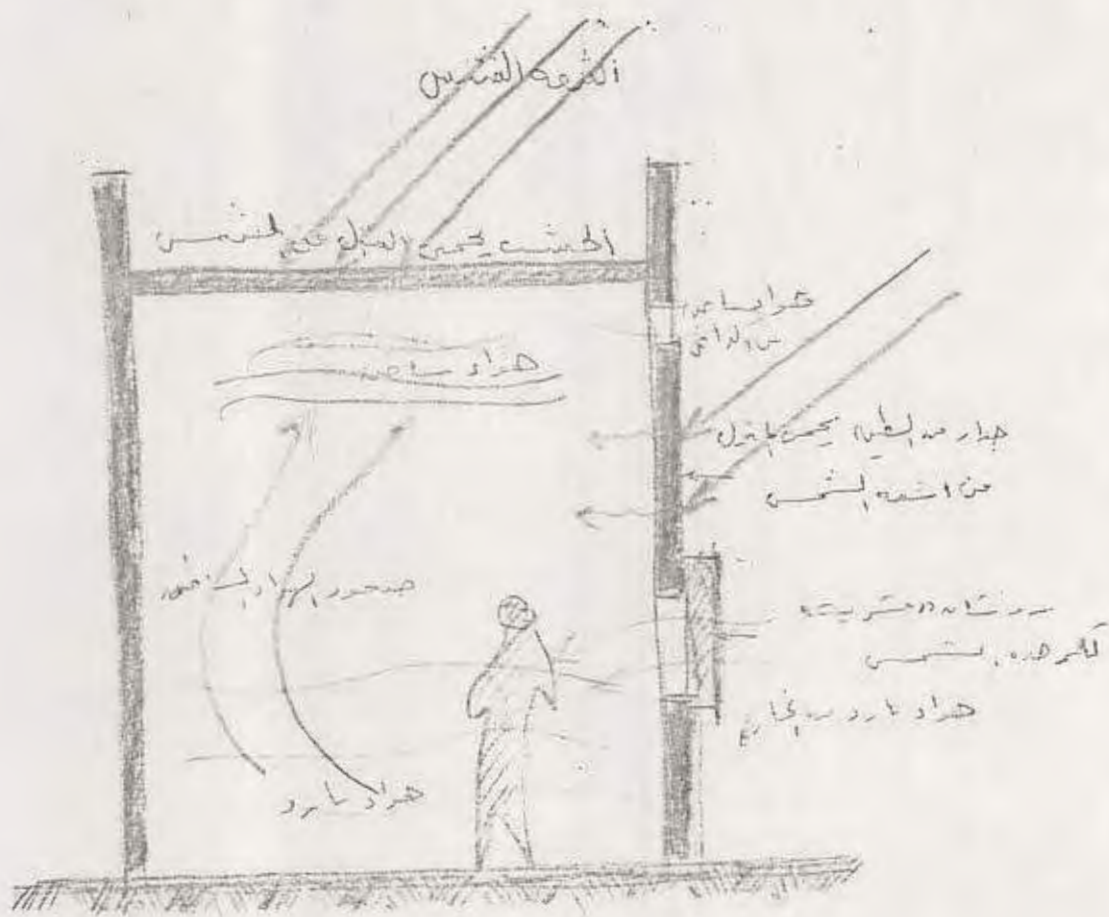 أشعة الشمس
الخشب يحمي المنزل من الشمس
هواء ساخن
هواء ساخن
من الداخل
جدار من الطين يحمي المنزل
من أشعة الشمس
صعود الهواء الساخن
روشان "مشربية"
الشمس
هواء بارد من الخارج
هواء بارد